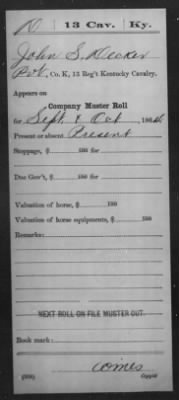 D | 13 Cav. | Ky.
John S. Decker
Pvt, Co. K, 13 Reg't Kentucky Cavalry.
Appears on
Company Muster Roll
for Sept & Oct , 1864
Present or absent Present
Stoppage, $ 100 for
Due Gov't, $ 100 for
Valuation of horse, $ 100
Valuation of horse equipments, $ 100
Remarks:
NEXT ROLL ON FILE MUSTER OUT.
Book mark:
(858)
Copyist.